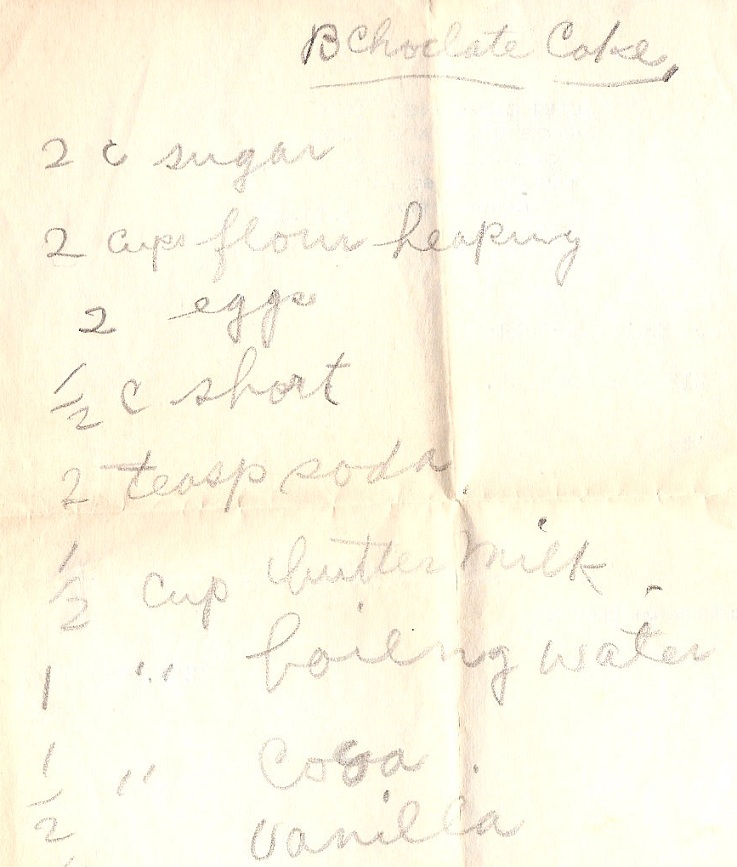 B Choclate Cake,
2 c sugar
2 cups flour heaping
2 eggs
1/2 c short
2 teasp soda
1/2 cup butter milk
1 " boileng water
1/2 " Cocoa
vanilla